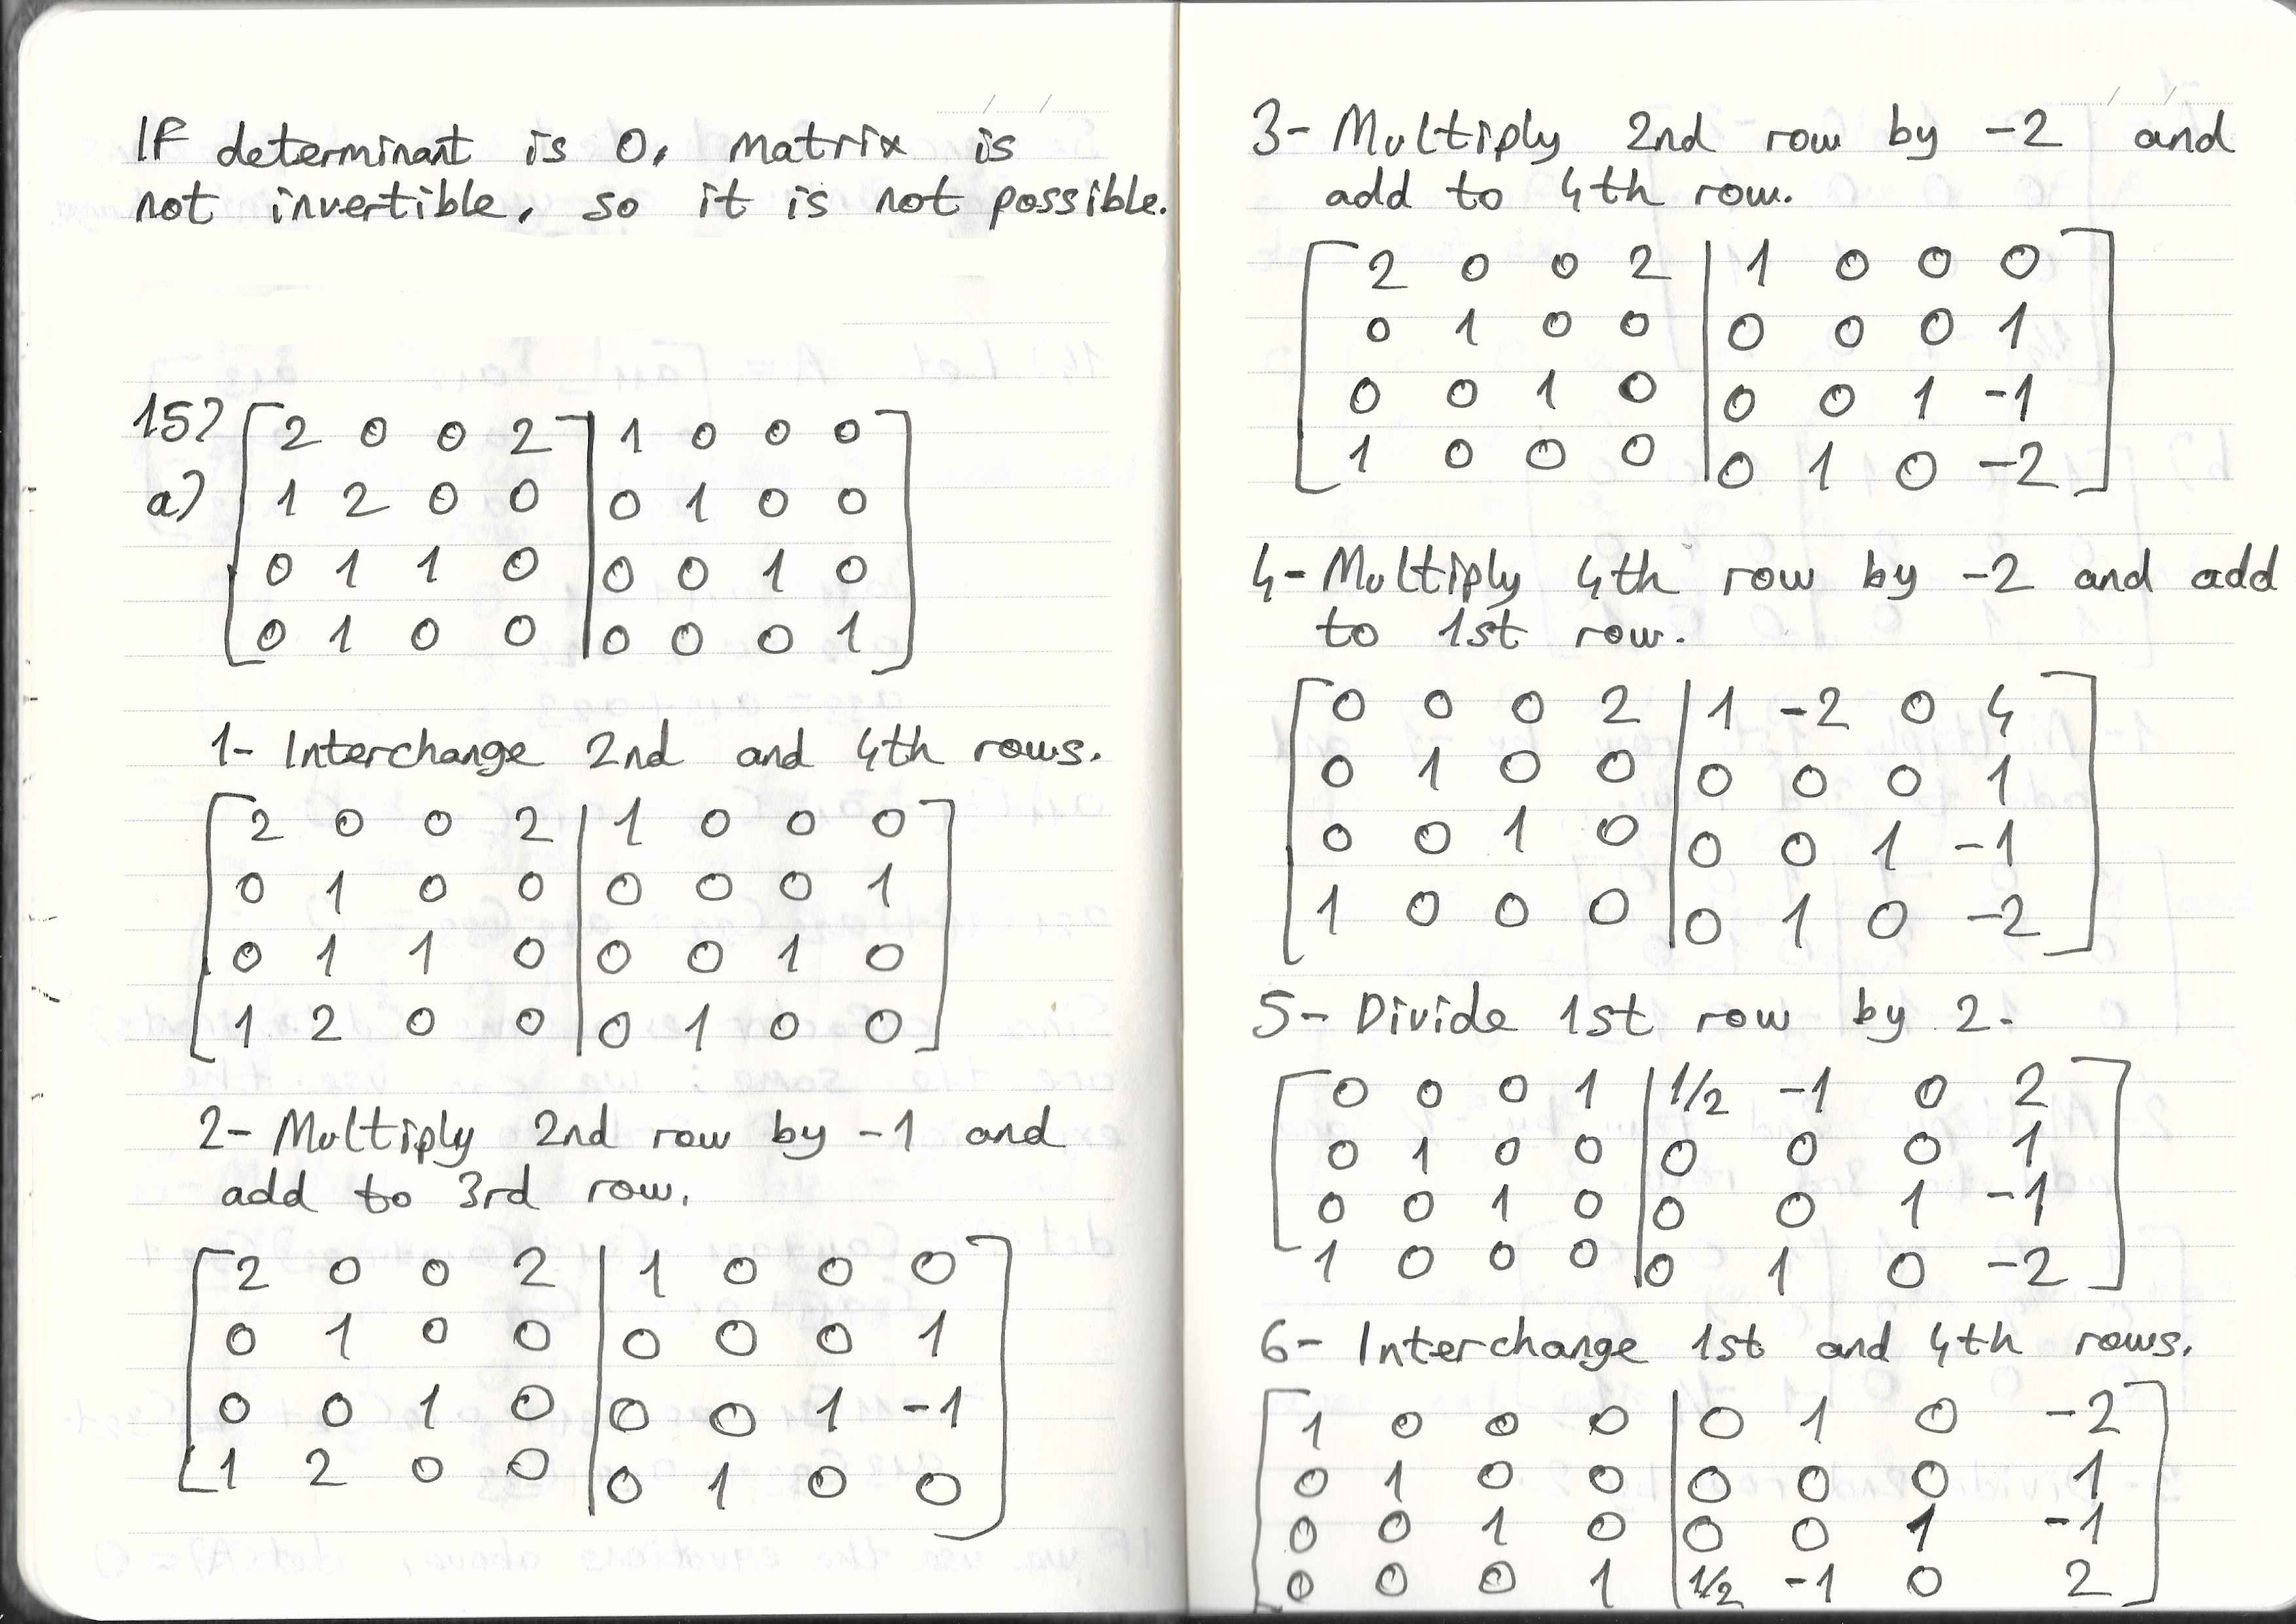 If determinant is 0, matrix is
not invertible, so it is not possible.
15)
a)
2 0 0 2 | 1 0 0 0
1 2 0 0 | 0 1 0 0
0 1 1 0 | 0 0 1 0
0 1 0 0 | 0 0 0 1
1- Interchange 2nd and 4th rows.
2 0 0 2 | 1 0 0 0
0 1 0 0 | 0 0 0 1
0 1 1 0 | 0 0 1 0
1 2 0 0 | 0 1 0 0
2- Multiply 2nd row by -1 and
add to 3rd row.
2 0 0 2 | 1 0 0 0
0 1 0 0 | 0 0 0 1
0 0 1 0 | 0 0 1 -1
1 2 0 0 | 0 1 0 0
3- Multiply 2nd row by -2 and
add to 4th row.
2 0 0 2 | 1 0 0 0
0 1 0 0 | 0 0 0 1
0 0 1 0 | 0 0 1 -1
1 0 0 0 | 0 1 0 -2
4- Multiply 4th row by -2 and add
to 1st row.
0 0 0 2 | 1 -2 0 4
0 1 0 0 | 0 0 0 1
0 0 1 0 | 0 0 1 -1
1 0 0 0 | 0 1 0 -2
5- Divide 1st row by 2.
0 0 0 1 | 1/2 -1 0 2
0 1 0 0 | 0 0 0 1
0 0 1 0 | 0 0 1 -1
1 0 0 0 | 0 1 0 -2
6- Interchange 1st and 4th rows.
1 0 0 0 | 0 1 0 -2
0 1 0 0 | 0 0 0 1
0 0 1 0 | 0 0 1 -1
0 0 0 1 | 1/2 -1 0 2